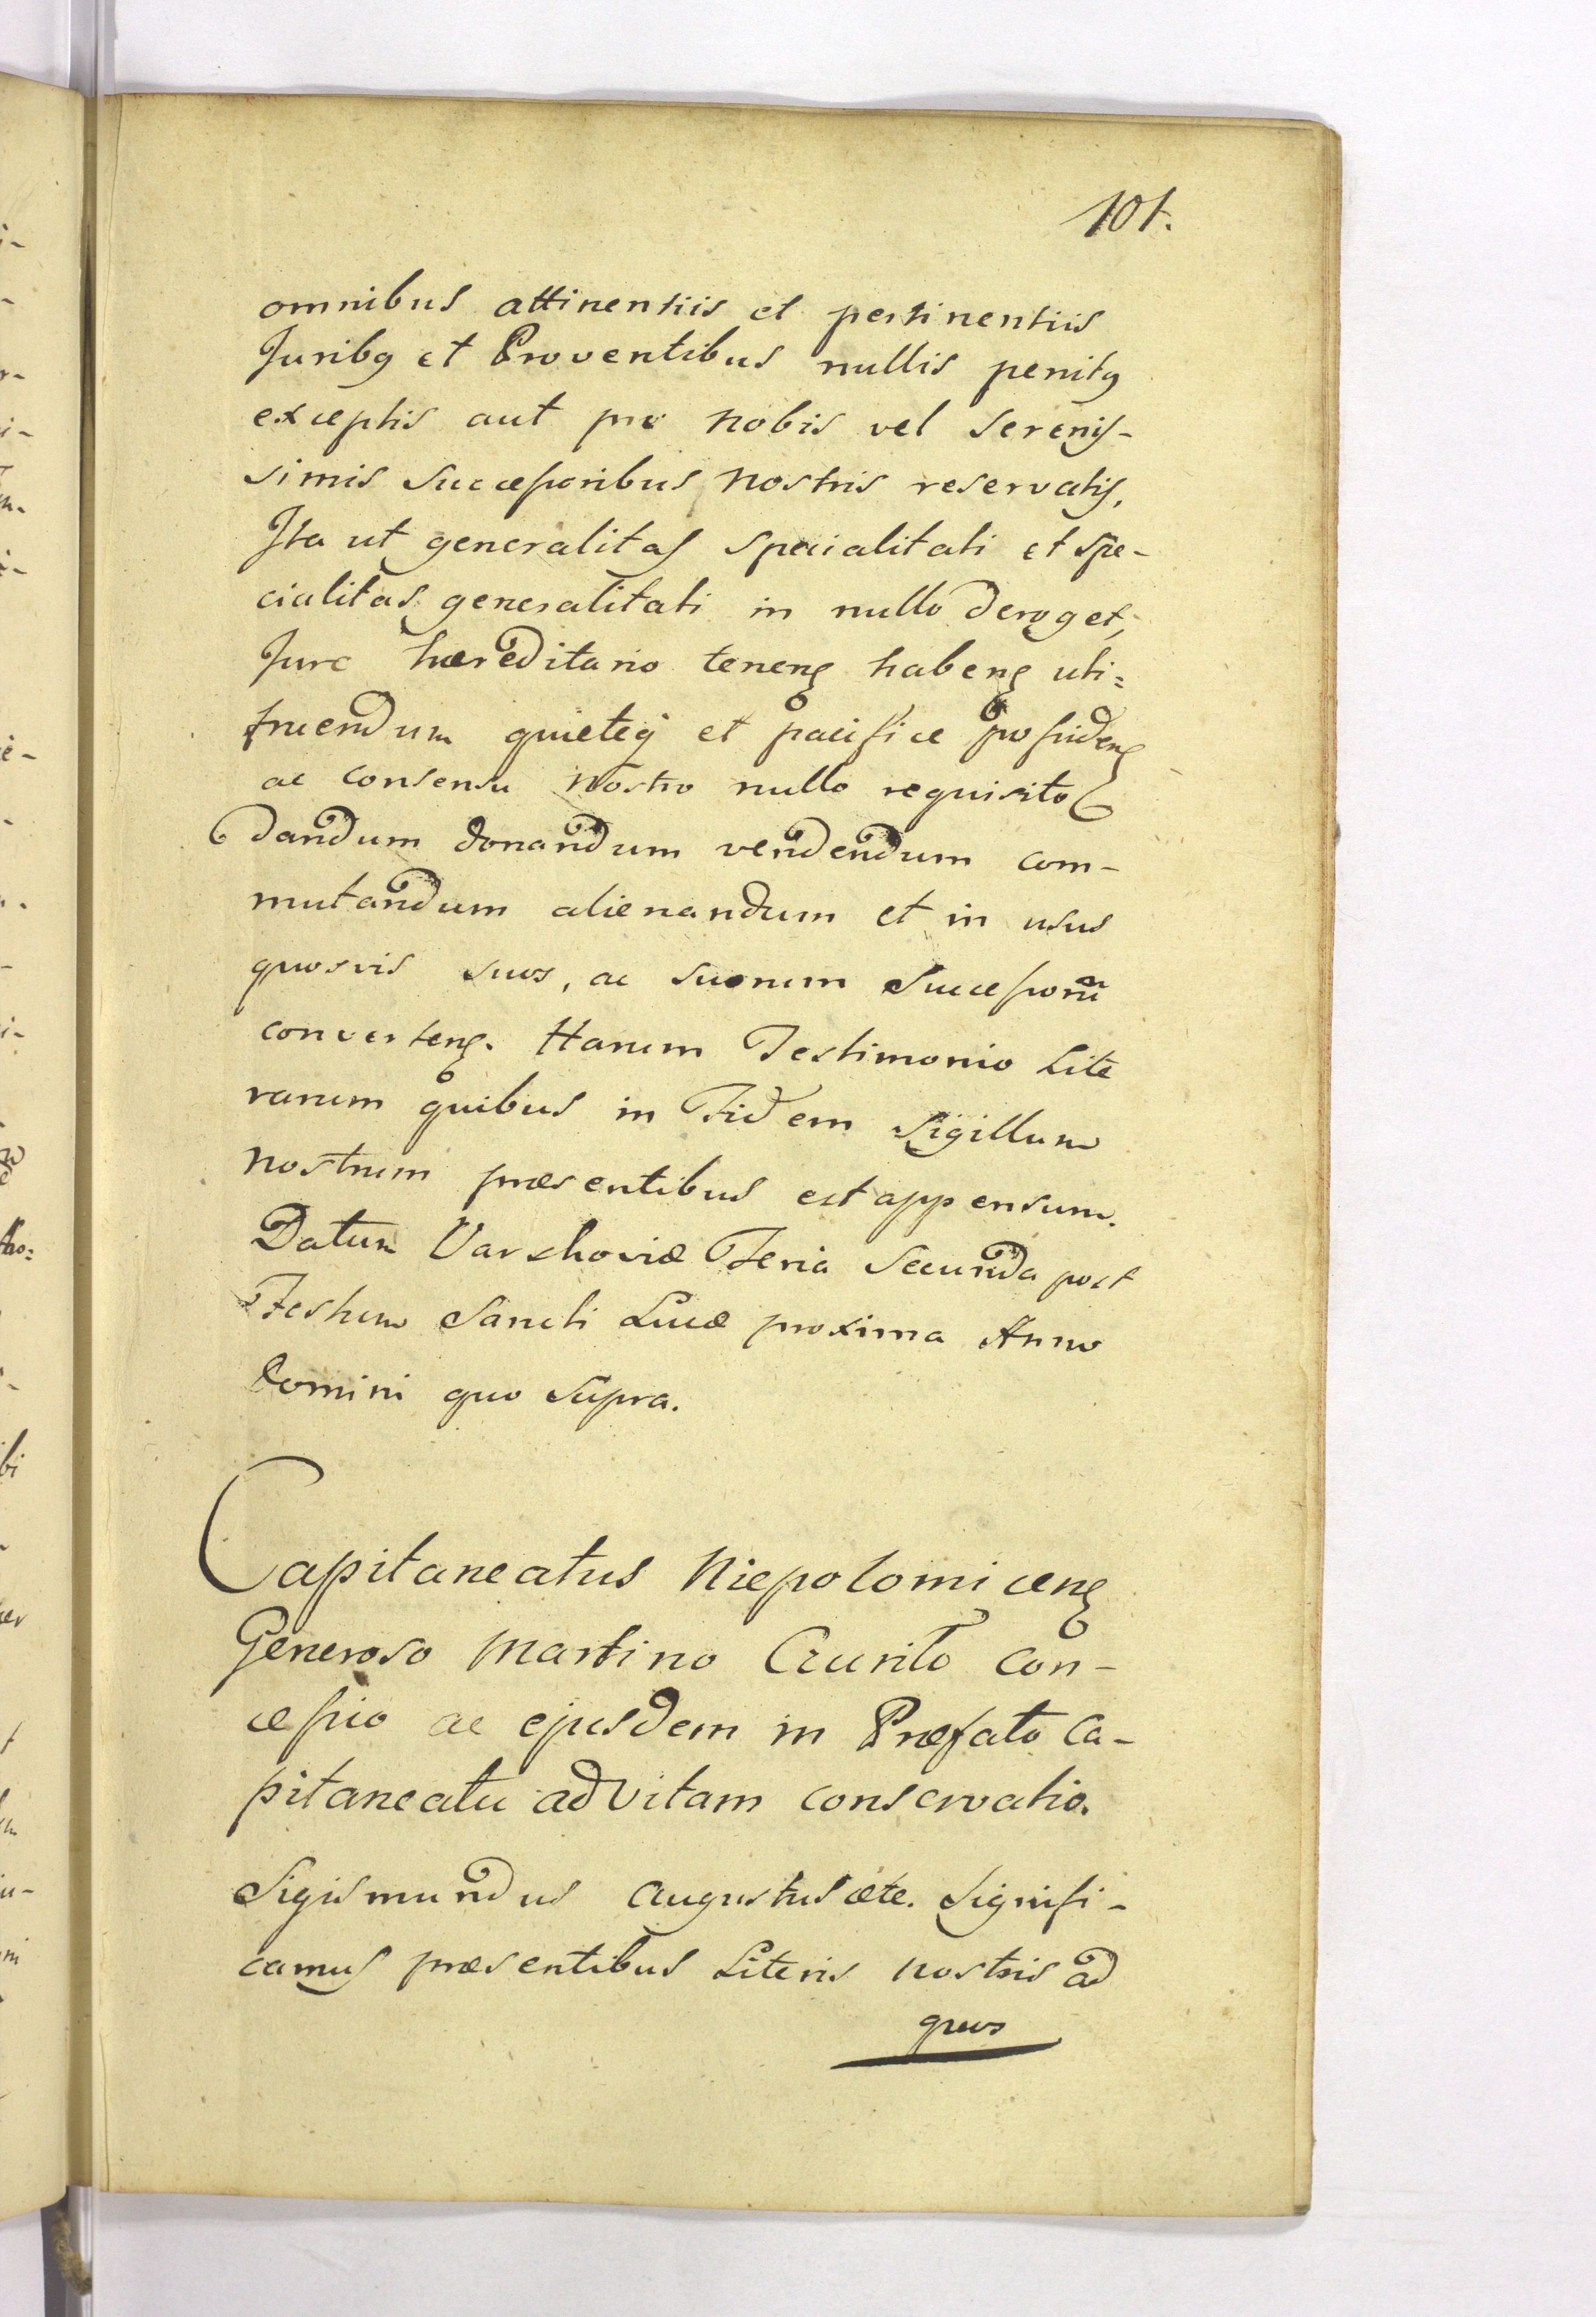 101.
omnibus attinentiis et pertinentiis
Juribꝫ et Proventibus nullis penitꝫ
exceptis aut pro nobis vel Serenis-
simis Successoribus nostris reservatis.
Ita ut generalitas specialitati et spe-
cialitas generalitati in nullo deroget,
Jure hæreditario tenenꝫ habenꝫ uti=
fruendum quieteqꝫ et pacifice possidenꝫ
ac consensu nostro nullo requisito
dandum donandum vendendum com-
mutandum alienandum et in usus
quosvis suos, ac suorum Successorū
convertenꝫ. Harum Testimonio Lite
rarum quibus in Fidem Sigillum
nostrum præsentibus est appensum.
Datum Varschoviæ Feria Secunda post
Festum Sancti Lucæ proxima Anno
Domini quo Supra.
Capitaneatus Niepolomicenꝫ
Generoso Martino Czurilo Con-
cessio ac ejusdem in Præfato Ca-
pitaneatu ad Vitam conservatio.
Sigismundus Augustus ete. Signifi-
camus præsentibus Literis nostris ad
quos